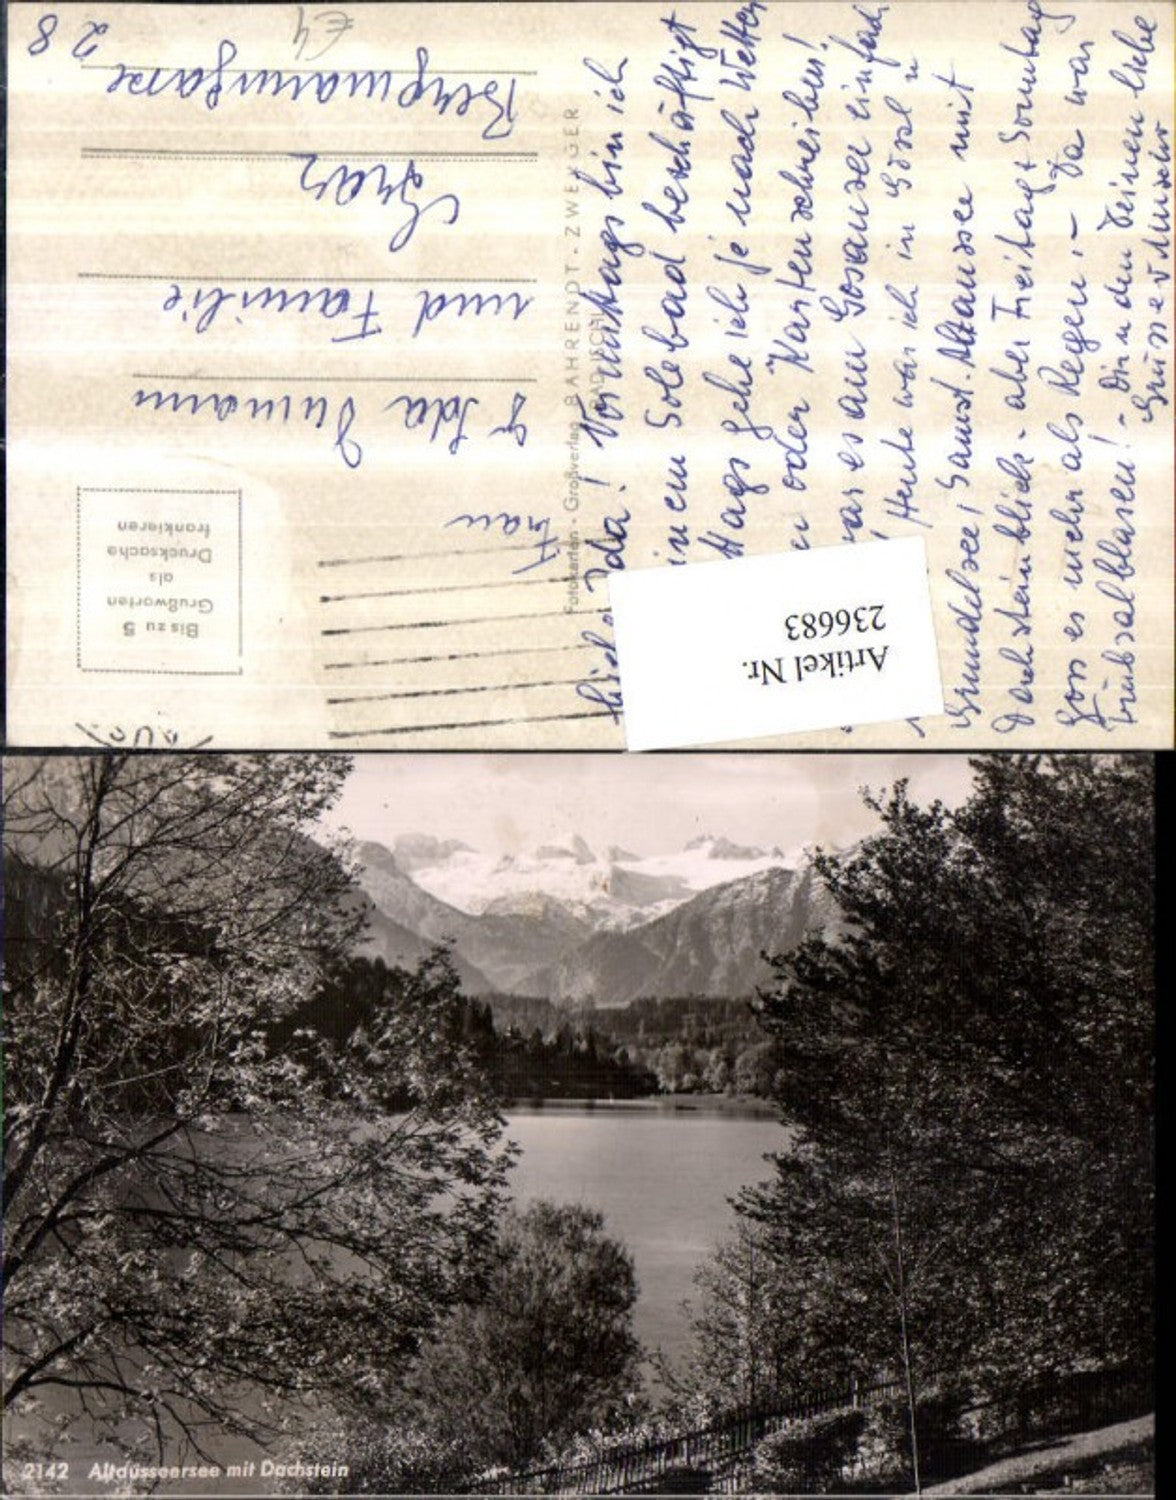 Liebe Ida! Vormittags bin ich
Solebad beschäftigt
gehe ich je nach Wetter
oder Karten schreiben!
war es am Gosausee einfach
Heute war ich in Gössl u
Grundelsee, Samst. Altaussee mit
Dachsteinblick - aber Freitag + Sonntag
goss es mehr als Regen! - Da war
Trübsalblasen! - Dir u den Deinen liebe
Grüsse
Fotokarten - Großverlag BAHRENDT - ZWERGER
BAD ISCHL
Bis zu 5
Grußworten
als
Drucksache
frankieren
Frau
Ida
und Familie
Graz
Bergmanngasse
28
€4
Artikel Nr.
236683
2142 Altausseersee mit Dachstein